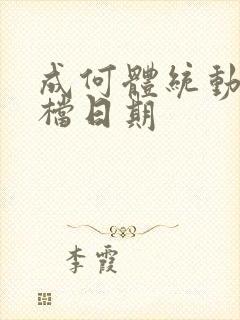 成何體統動
檔日期
李霞